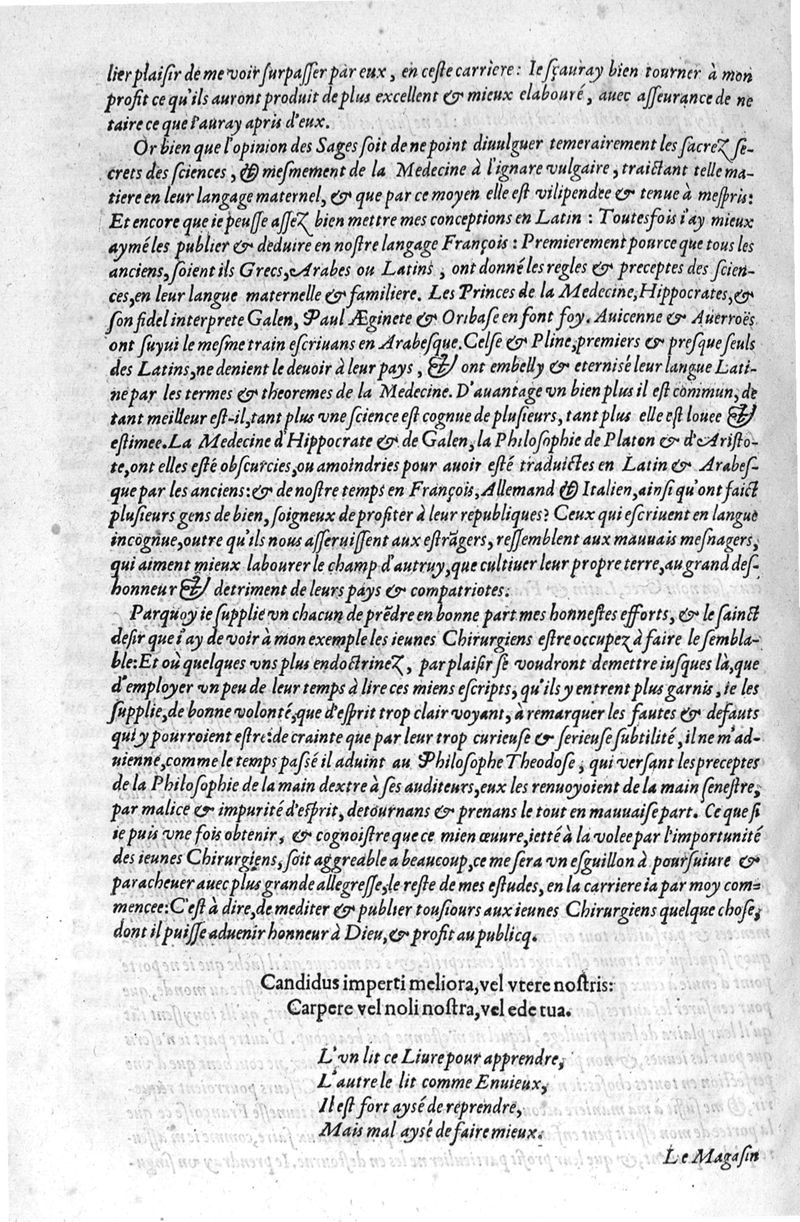 lier plaisir de me voir surpasser par eux, en ceste carriere: Ie sçauray bien tourner à mon
profit ce qu'ils auront produit de plus excellent & mieux elabouré, auec asseurance de ne
taire ce que i'auray apris d'eux.
Or bien que l'opinion des Sages soit de ne point diuulguer temerairement les sacrez se-
crets des sciences, & mesmement de la Medecine à l'ignare vulgaire, traictant telle ma-
tiere en leur langage maternel, & que par ce moyen elle est vilipendee & tenue à mespris:
Et encore que ie peusse assez bien mettre mes conceptions en Latin: Toutesfois i'ay mieux
aymé les publier & deduire en nostre langage François: Premierement pource que tous les
anciens, soient ils Grecs, Arabes ou Latins, ont donné les regles & preceptes des scien-
ces, en leur langue maternelle & familiere. Les Princes de la Medecine, Hippocrates, &
son fidel interprete Galen, Paul Æginete & Oribase en font foy. Auicenne & Auerroës
ont suyui le mesme train escriuans en Arabesque. Celse & Pline, premiers & presque seuls
des Latins, ne denient le deuoir à leur pays, & ont embelly & eternisé leur langue Lati-
ne par les termes & theoremes de la Medecine. D'auantage vn bien plus il est commun, de
tant meilleur est-il, tant plus vne science est cognue de plusieurs, tant plus elle est louee &
estimee. La Medecine d'Hippocrate & de Galen, la Philosophie de Platon & d'Aristo-
te, ont elles esté obscurcies, ou amoindries pour auoir esté traduictes en Latin & Arabes-
que par les anciens: & de nostre temps en François, Allemand & Italien, ainsi qu'ont faict
plusieurs gens de bien, soigneux de profiter à leur republiques? Ceux qui escriuent en langue
incognue, outre qu'ils nous asseruissent aux estrãgers, ressemblent aux mauuais mesnagers,
qui aiment mieux labourer le champ d'autruy, que cultiuer leur propre terre, au grand des-
honneur & detriment de leurs pays & compatriotes.
Parquoy ie supplie vn chacun de prẽdre en bonne part mes honnestes efforts, & le sainct
desir que i'ay de voir à mon exemple les ieunes Chirurgiens estre occupez à faire le sembla-
ble: Et où quelques vns plus endoctrinez, par plaisir se voudront demettre iusques là, que
d'employer vn peu de leur temps à lire ces miens escripts, qu'ils y entrent plus garnis, ie les
supplie, de bonne volonté, que d'esprit trop clair voyant, à remarquer les fautes & defauts
qui y pourroient estre: de crainte que par leur trop curieuse & serieuse subtilité, il ne m'ad-
uienne, comme le temps passé il aduint au Philosophe Theodose, qui versant les preceptes
de la Philosophie de la main dextre à ses auditeurs, eux les renuoyoient de la main senestre,
par malice & impurité d'esprit, detournans & prenans le tout en mauuaise part. Ce que si
ie puis vne fois obtenir, & cognoistre que ce mien œuure, ietté à la volee par l'importunité
des ieunes Chirurgiens, soit aggreable a beaucoup, ce me sera vn esguillon à poursuiure &
paracheuer auec plus grande allegresse, le reste de mes estudes, en la carriere ia par moy com-
mencee: C'est à dire, de mediter & publier tousiours aux ieunes Chirurgiens quelque chose,
dont il puisse aduenir honneur à Dieu, & profit au publicq.
Candidus imperti meliora, vel vtere nostris:
Carpere vel noli nostra, vel ede tua.
L'vn lit ce Liure pour apprendre,
L'autre le lit comme Enuieux,
Il est fort aysé de reprendre,
Mais mal aysé de faire mieux.
Le Magasin